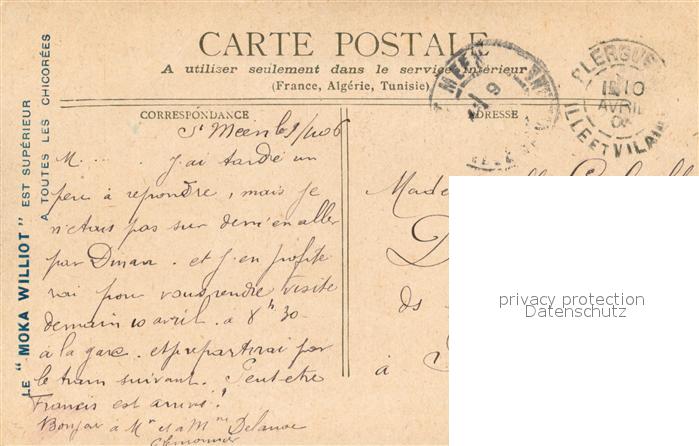 CARTE POSTALE
A utiliser seulement dans le service intérieur
(France, Algérie, Tunisie)
CORRESPONDANCE
ADRESSE
LE "MOKA WILLIOT" EST SUPÉRIEUR
A TOUTES LES CHICORÉES
St MÉEN
9
PLERGUE
1E 10
AVRIL
06
ILLE ET VILAINE
St Méen le 9/4 06
M. . . . J'ai tardé un
peu à repondre, mais je
n'etais pas sur de m'en aller
par Dinan. et J'en profite
rai pour vous rendre visite
demain 10 avril. a 8h 30
à la gare. et je repartirai par
le train suivant. Peut-etre
Francis est arrivé!
Bonjour à Mr et à Mme Delanoe
Made
D
ds
à
privacy protection
Datenschutz